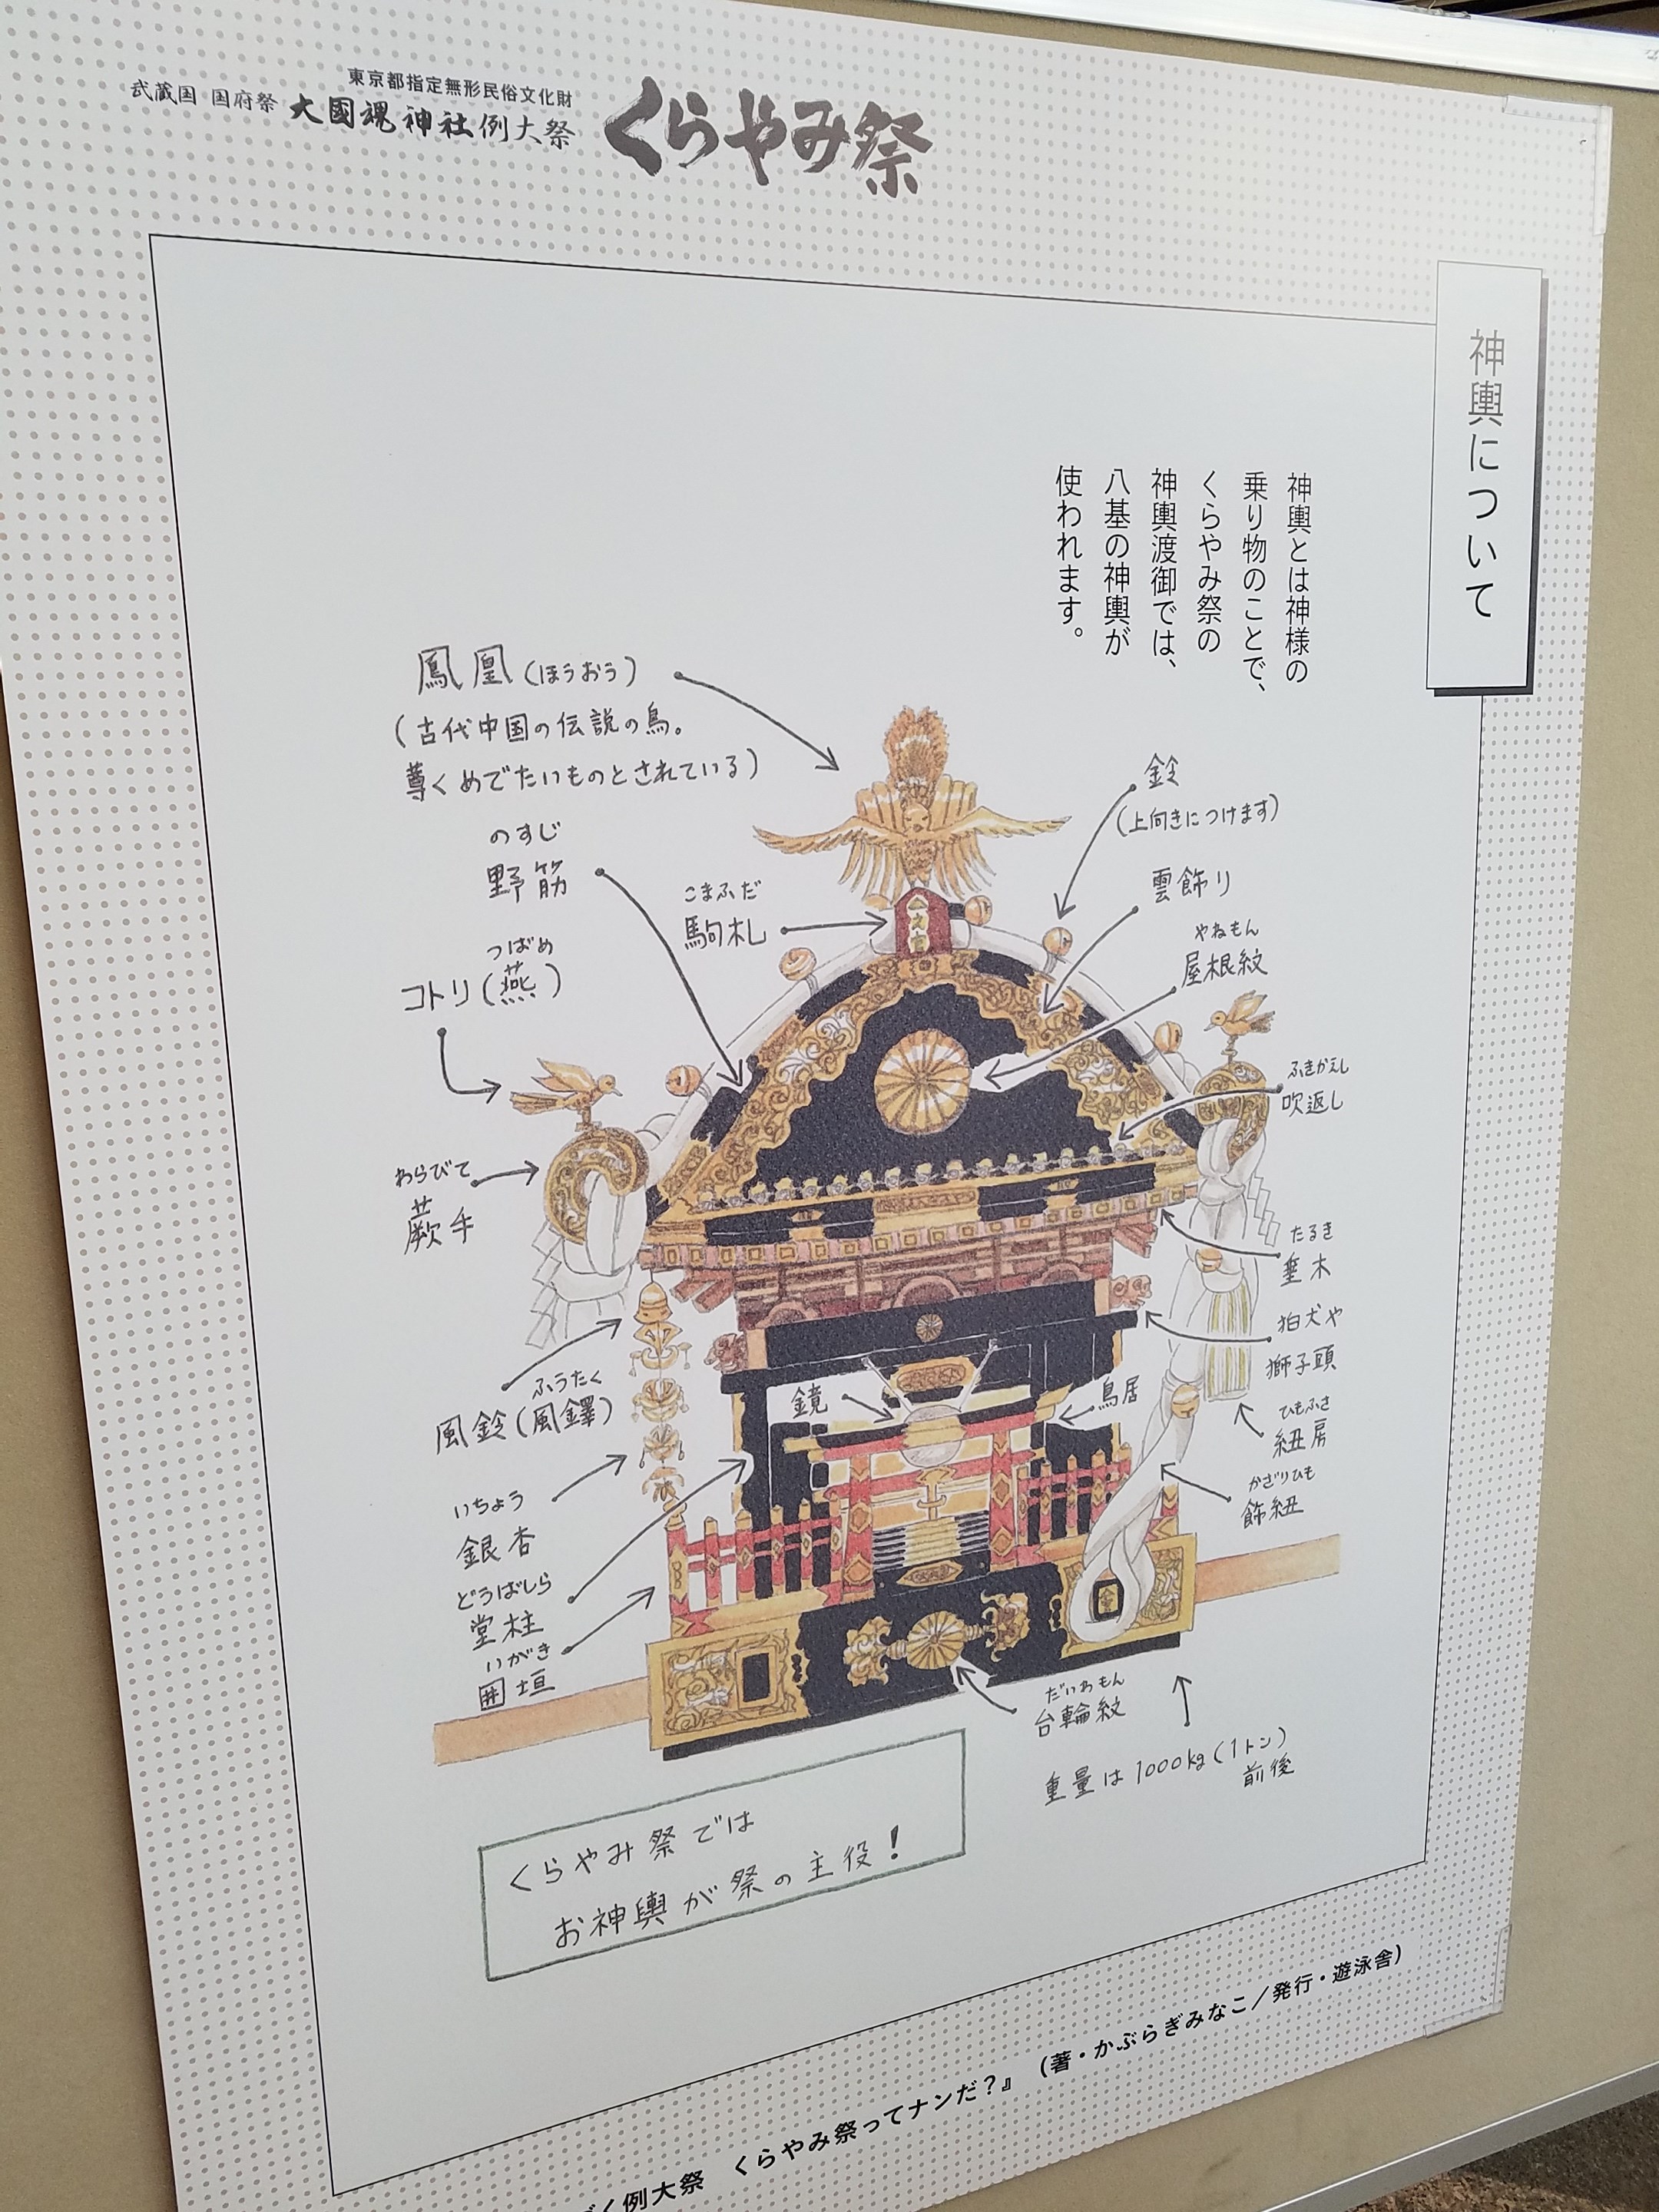 東京都指定無形民俗文化財
武蔵国 国府祭 大國魂神社例大祭 くらやみ祭
神輿について
神輿とは神様の
乗り物のことで、
くらやみ祭の
神輿渡御では、
八基の神輿が
使われます。
鳳凰(ほうおう)
(古代中国の伝説の鳥。
尊くめでたいものとされている)
のすじ
野筋
こまふだ
駒札
つばめ
コトリ(燕)
わらびて
蕨手
ふうたく
風鈴(風鐸)
いちょう
銀杏
どうばしら
堂柱
いがき
囲垣
鈴
(上向きにつけます)
雲飾り
やねもん
屋根紋
ふきかえし
吹返し
たるき
垂木
狛犬や
獅子頭
ひもふさ
紐房
かざりひも
飾紐
鏡
鳥居
だいわもん
台輪紋
重量は1000kg(1トン)
前後
くらやみ祭では
お神輿が祭の主役!
く例大祭 くらやみ祭ってナンだ?』(著・かぶらぎみなこ/発行・遊泳舎)